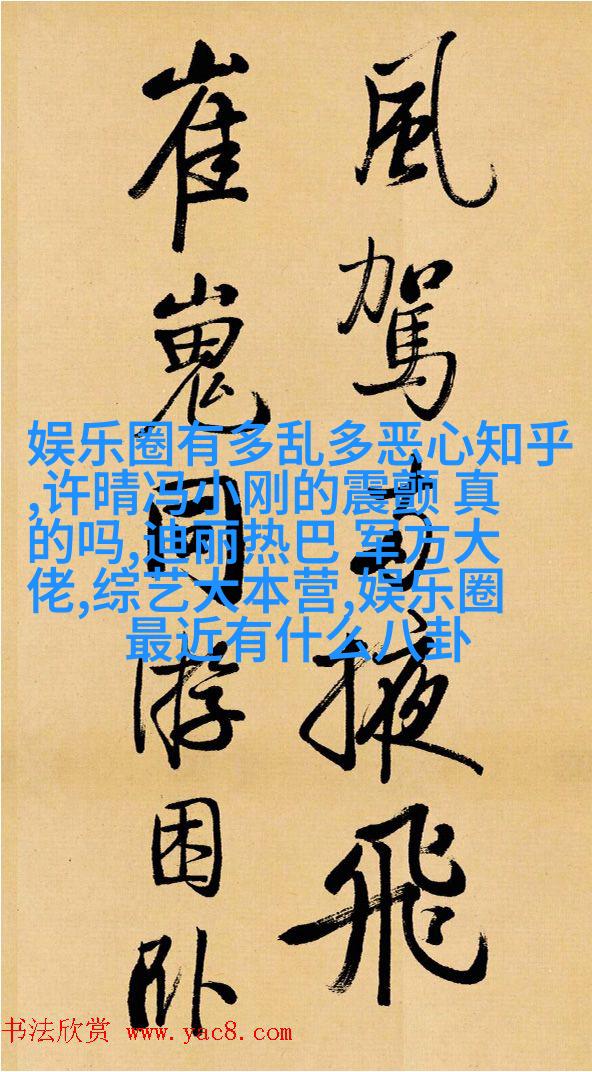 風駕掖飛
崔嵬同游困卧
娱乐圈有多乱多恶心知乎
,许晴冯小刚的震颤 真
的吗,迪丽热巴 军方大
佬,综艺大本营,娱乐圈
最近有什么八卦
书法欣赏 www.yac8.com